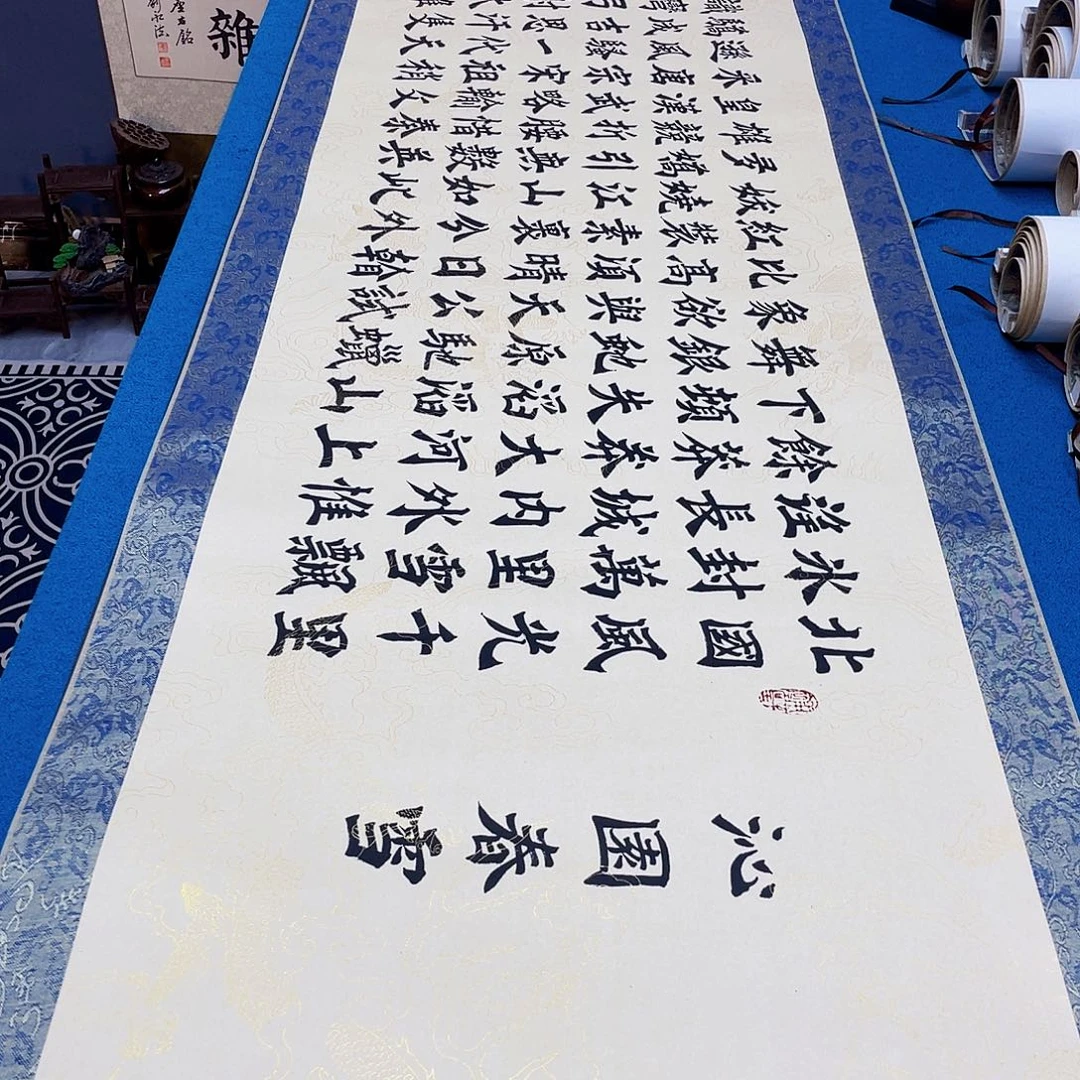 沁園春雪
北國風光千里
冰封萬里雪飄
望長城內外惟
餘莽莽大河上
下頓失滔滔山
舞銀蛇原馳蠟
象欲與天公試
比高須晴日看
紅裝素裹分外
妖嬈江山如此
多嬌引無數英
雄競折腰惜秦
皇漢武略輸文
采唐宗宋祖稍
遜風騷一代天
驕成吉思汗隻
識彎弓射大雕
雜
座右銘